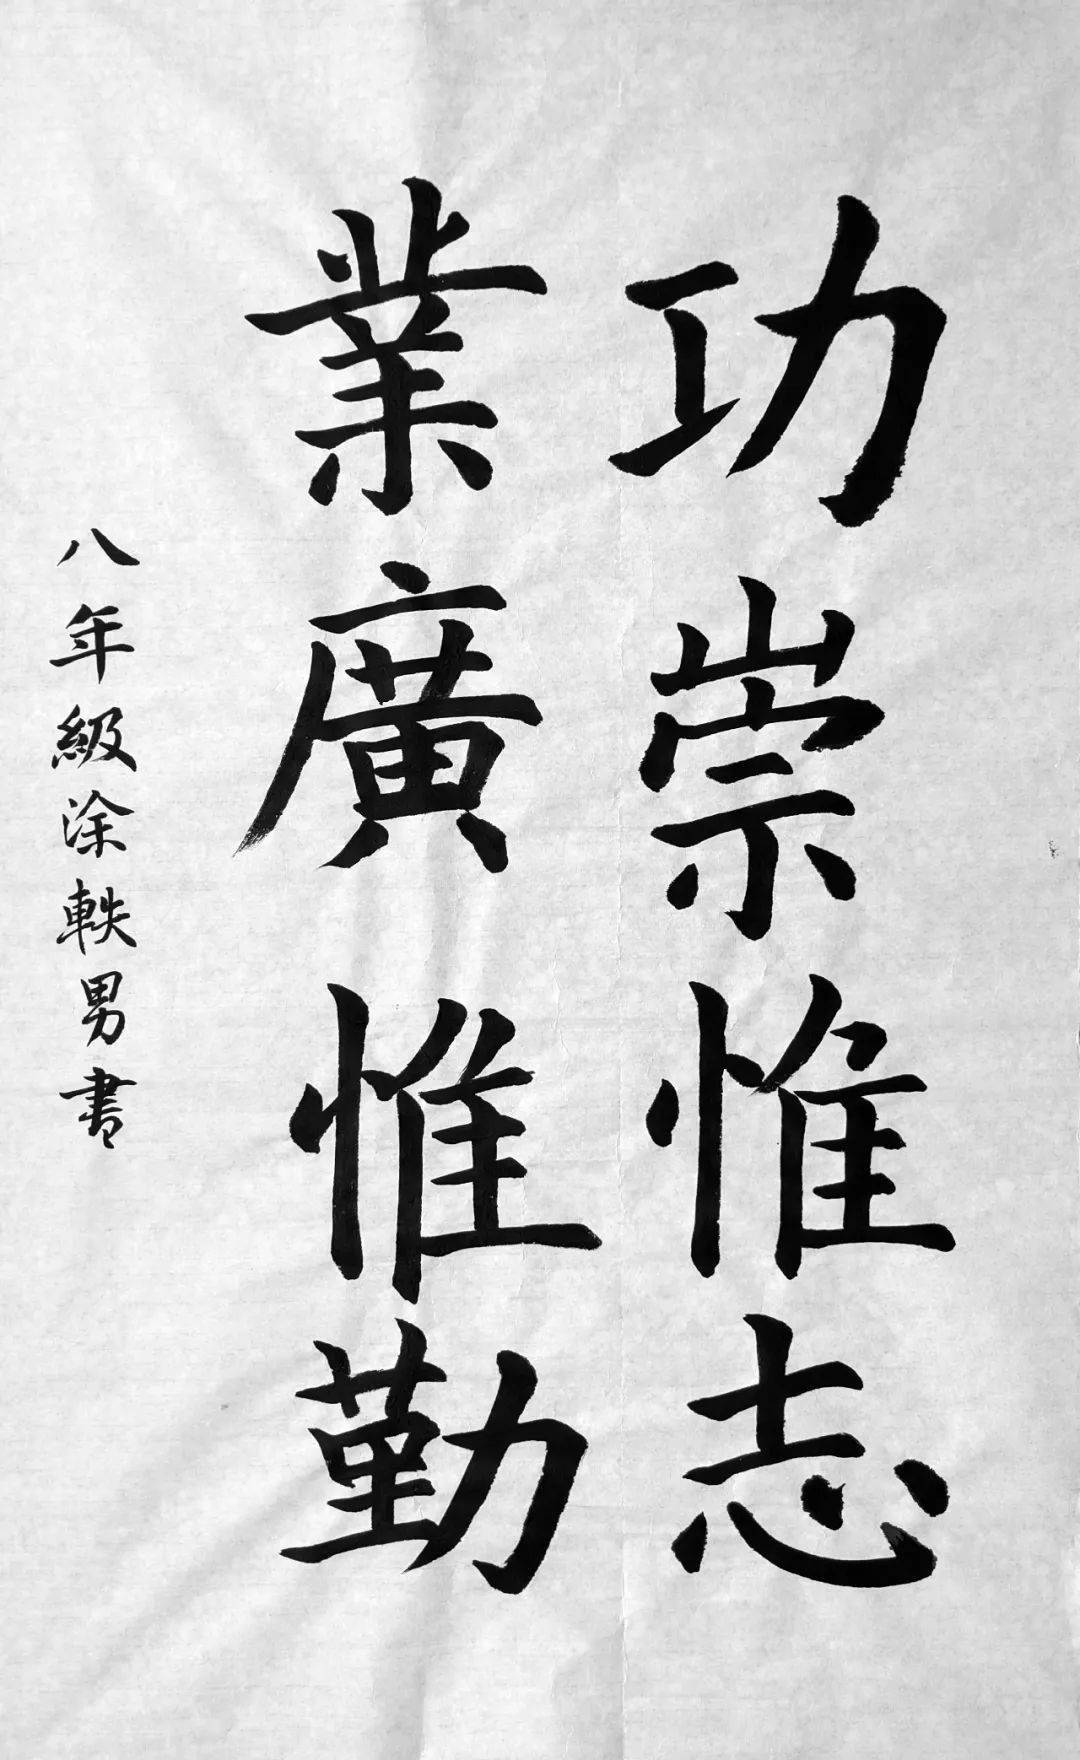 功崇惟志
業廣惟勤
八年級涂軼男書